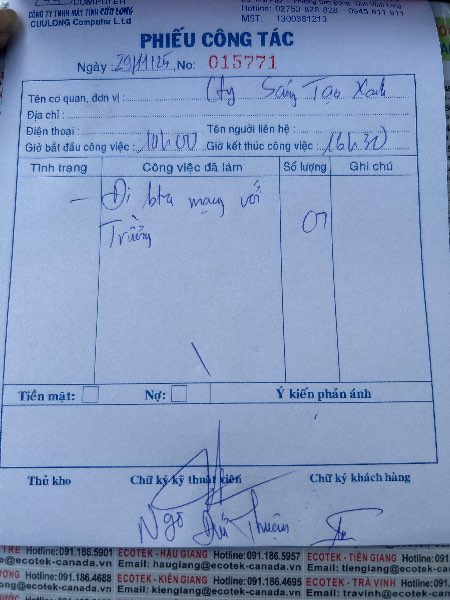 COMPUTER
CÔNG TY TNHH MÁY TÍNH CỬU LONG
CUULONG Computer L.td
Hotline: 02753 828 828 - 0945 611 911
MST: 1300381213
PHIẾU CÔNG TÁC
Ngày: 29/11/25, No: 015771
Tên cơ quan, đơn vị: Cty Sáng Tạo Xanh
Địa chỉ:
Điện thoại: Tên người liên hệ:
Giờ bắt đầu công việc: 14h00 Giờ kết thúc công việc: 16h30
Tình trạng Công việc đã làm Số lượng Ghi chú
- Đi mạng với
Trường 01
Tiền mặt: Nợ: Ý kiến phản ánh
Thủ kho Chữ ký kỹ thuật viên Chữ ký khách hàng
Ngô Đức Thuận
TRE Hotline:091.186.5901 ECOTEK - HẬU GIANG Hotline:091.186.5957 ECOTEK - KIÊN GIANG Hotline:091.18
@ecotek-canada.vn Email: haugiang@ecotek-canada.vn Email: kiengiang@ecotek-cana
Hotline:091.186.4688 ECOTEK - KIÊN GIANG Hotline:091.186.4695 ECOTEK - TRÀ VINH Hotline:091.18
ecotek-canada.vn Email: kiengiang@ecotek-canada.vn Email: travinh@ecotek-canada